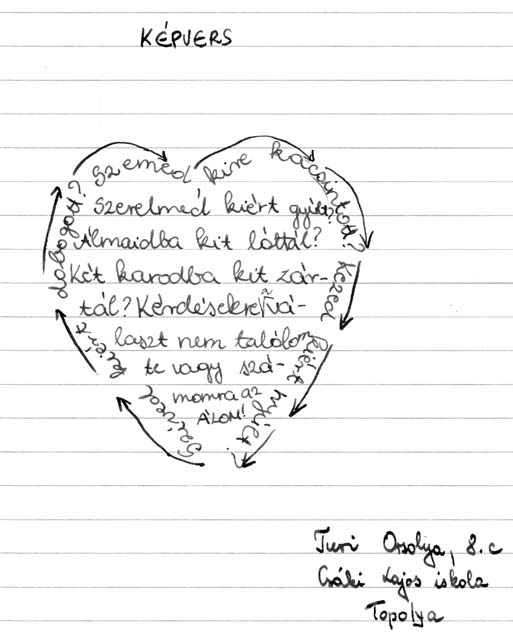 KÉPVERS
Szemed kire kacsintott?
Kezed
kiért nyúlt?
Szíved
kiért
dobogott?
Szerelmed kiért gyúlt?
Álmaidba kit láttál?
Két karodba kit zár-
tál? Kérdésekre a vá-
laszt nem találom
te vagy szá-
momra az
ÁLOM!
Turi Orsolya, 8.c
Csáki Lajos iskola
Topolya